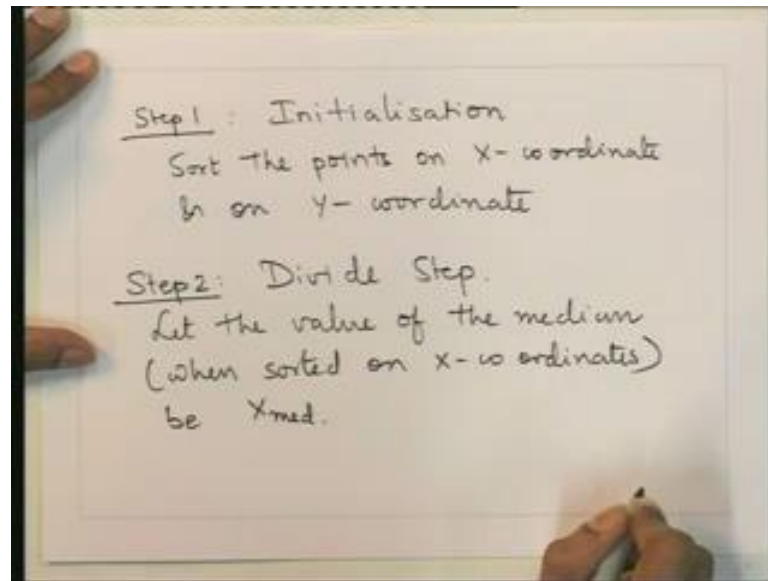 Step 1 : Initialisation
Sort the points on X-coordinate
& on Y-coordinate
Step 2: Divide Step.
Let the value of the medium
(when sorted on X-coordinates)
be Xmed.